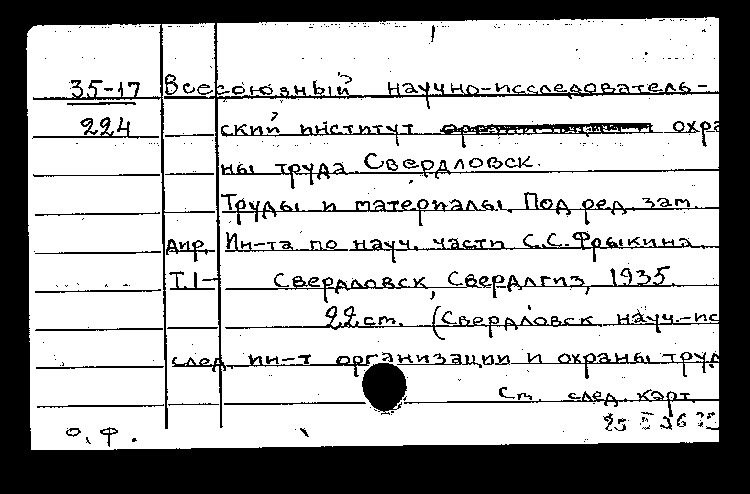 35-17 Всесоюзный научно-исследователь-
224 ский институт охра
ны труда. Свердловск.
Труды и материалы. Под ред. зам.
дир. Ин-та по науч. части С.С. Фрыкина.
Т.1- Свердловск, Свердлгиз, 1935.
22 см. (Свердловск. науч.-ис
след. ин-т организации и охраны труд
См. след. карт.
о. ф.